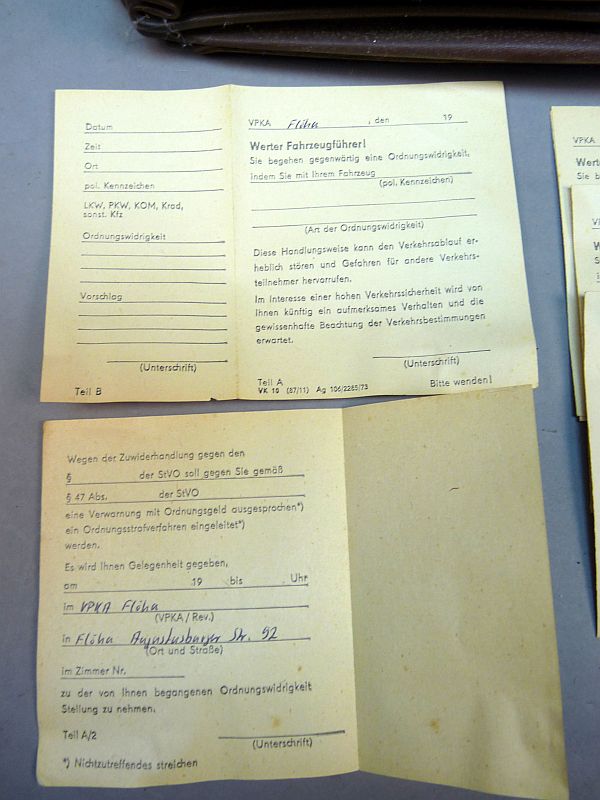 Datum
Zeit
Ort
pol. Kennzeichen
LKW, PKW, KOM, Krad,
sonst. Kfz
Ordnungswidrigkeit
Vorschlag
(Unterschrift)
Teil B
VPKA Flöha, den 19
Werter Fahrzeugführer!
Sie begehen gegenwärtig eine Ordnungswidrigkeit,
indem Sie mit Ihrem Fahrzeug
(pol. Kennzeichen)
(Art der Ordnungswidrigkeit)
Diese Handlungsweise kann den Verkehrsablauf er-
heblich stören und Gefahren für andere Verkehrs-
teilnehmer hervorrufen.
Im Interesse einer hohen Verkehrssicherheit wird von
Ihnen künftig ein aufmerksames Verhalten und die
gewissenhafte Beachtung der Verkehrsbestimmungen
erwartet.
(Unterschrift)
Teil A
Bitte wenden!
VK 10 (87/11) Ag 106/2285/73
VPKA
Werte
Sie b
Wegen der Zuwiderhandlung gegen den
§ der StVO soll gegen Sie gemäß
§ 47 Abs. der StVO
eine Verwarnung mit Ordnungsgeld ausgesprochen*)
ein Ordnungsstrafverfahren eingeleitet*)
werden.
Es wird Ihnen Gelegenheit gegeben,
am 19 bis Uhr
im VPKA Flöha
(VPKA/Rev.)
in Flöha Augustusburger Str. 92
(Ort und Straße)
im Zimmer Nr.
zu der von Ihnen begangenen Ordnungswidrigkeit
Stellung zu nehmen.
Teil A/2
(Unterschrift)
*) Nichtzutreffendes streichen